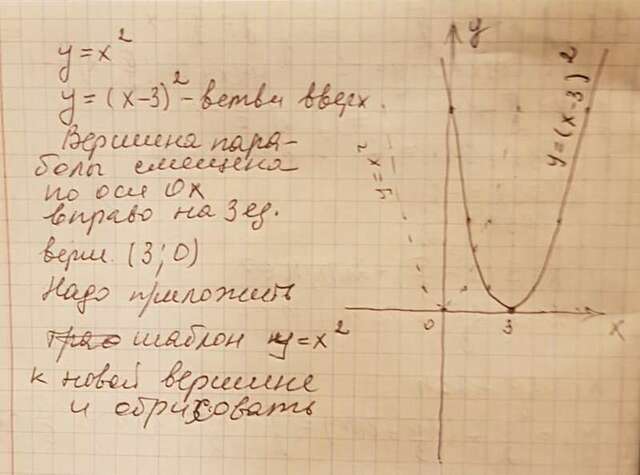 y = x²
y = (x-3)² - ветви вверх.
Вершина пара-
болы смещена
по оси Ox
вправо на 3 ед.
верш. (3; 0)
Надо приложить
шаблон y = x²
к новой вершине
и обрисовать
y
y = (x-3)²
y = x²
0
3
x